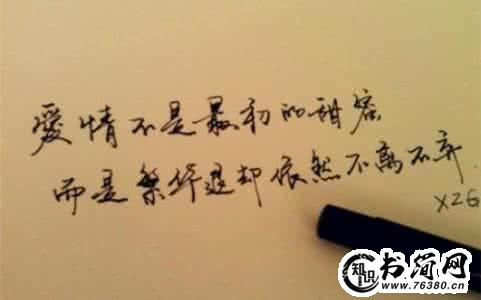 愛情不是最初的甜蜜
而是繁华退却依然不离不弃.
XZG
知识
书简网
www.76380.cn